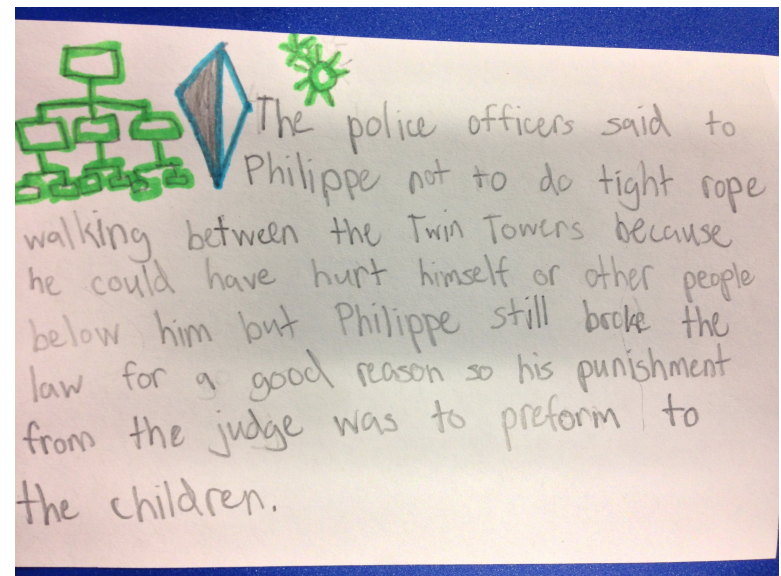 The police officers said to
Philippe not to do tight rope
walking between the Twin Towers because
he could have hurt himself or other people
below him but Philippe still broke the
law for a good reason so his punishment
from the judge was to preform to
the children.